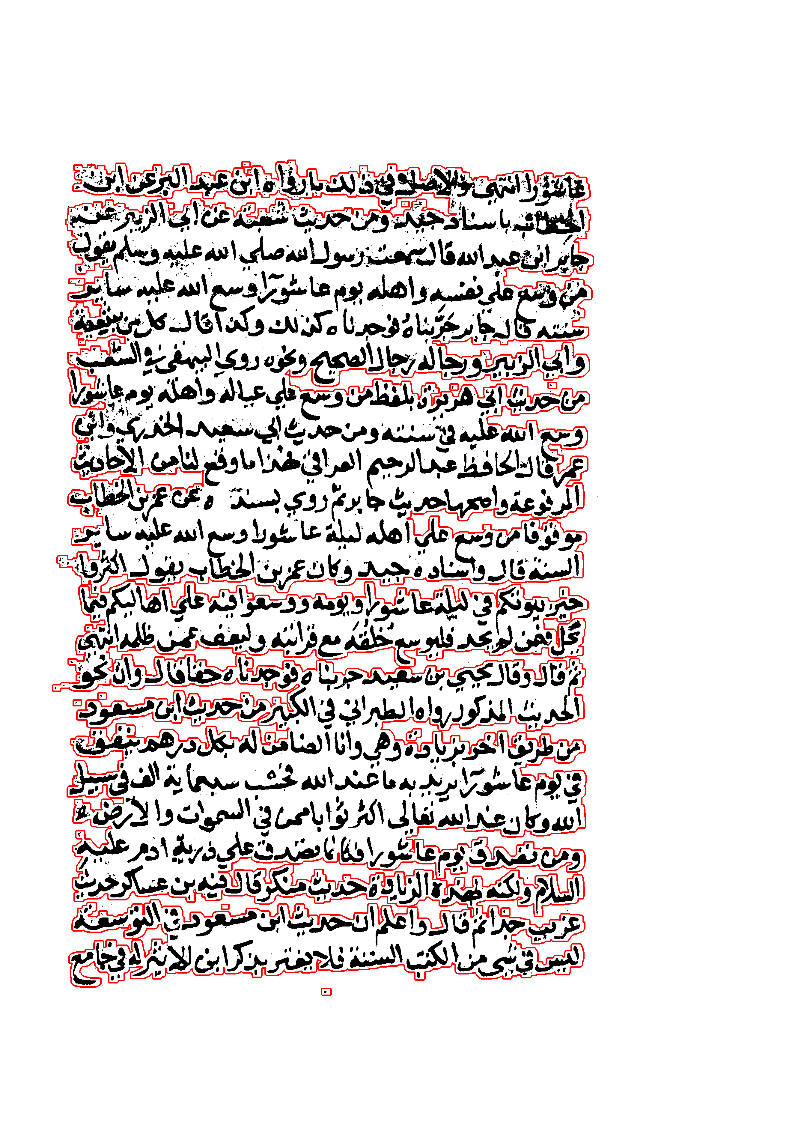 عاشورا انتهى والاصل في ذلك ما رواه ابن عبد البر عن ابن
باسناد جيد ومن حديث شعبة عن ابي الزبير عن
جابر ابن عبد الله قال سمعت رسول الله صلي الله عليه وسلم يقول
من وسع علي نفسه واهله يوم عاشورآ وسع الله عليه ساير
سنته قال جابر جربناه فوجدناه كذلك وكذا قال كل من شعبة
وابي الزبير ورجاله رجال الصحيح ونحوه روي البيهقي في الشعب
من حديث ابي هريرة بلفظ من وسع علي عياله واهله يوم عاشورا
وسع الله عليه في سنته ومن حديث ابي سعيد الخدري وابن
عمر قال الحافظ عبد الرحيم العراقي هذا ما وقع لنا من الاحاديث
المرفوعة واصحها حديث جابر ثم روي بسنده عن عمر بن الخطاب
موقوفا من وسع علي اهله ليلة عاشورا وسع الله عليه ساير
السنة قال واسناده جيد وكان عمر بن الخطاب يقول اكثروا
خير بيوتكم في ليلة عاشورا ويومه ووسعوا فيه علي اهاليكم فيما
يحل فمن لم يجد فليوسع خلقه مع قرابته وليعف عمن ظلمه انتهي
ثم قال وقال يحيي بن سعيد جربناه فوجدناه حقا قال وان نحو
الحديث المذكور رواه الطبراني في الكبير من حديث ابن مسعود
من طريق اخر بزيادة وهي وانا الضامن له بكل درهم ينفق
في يوم عاشورآ يريد به ما عند الله يحسب سبعماية الف في سبيل
الله وكان عند الله تعالى اكثر ثوابا ممن في السموات والارض
ومن تصدق يوم عاشورا فكانما تصدق علي ذرية ادم عليه
السلام ولكنه بهذه الزيادة حديث منكر قال فيه بن عساكر حديث
غريب جدا ثم قال واعلم ان حديث ابن مسعود في التوسعة
ليس في شي من الكتب الستة فلا يغتر بذكر ابن الاثير له في جامع